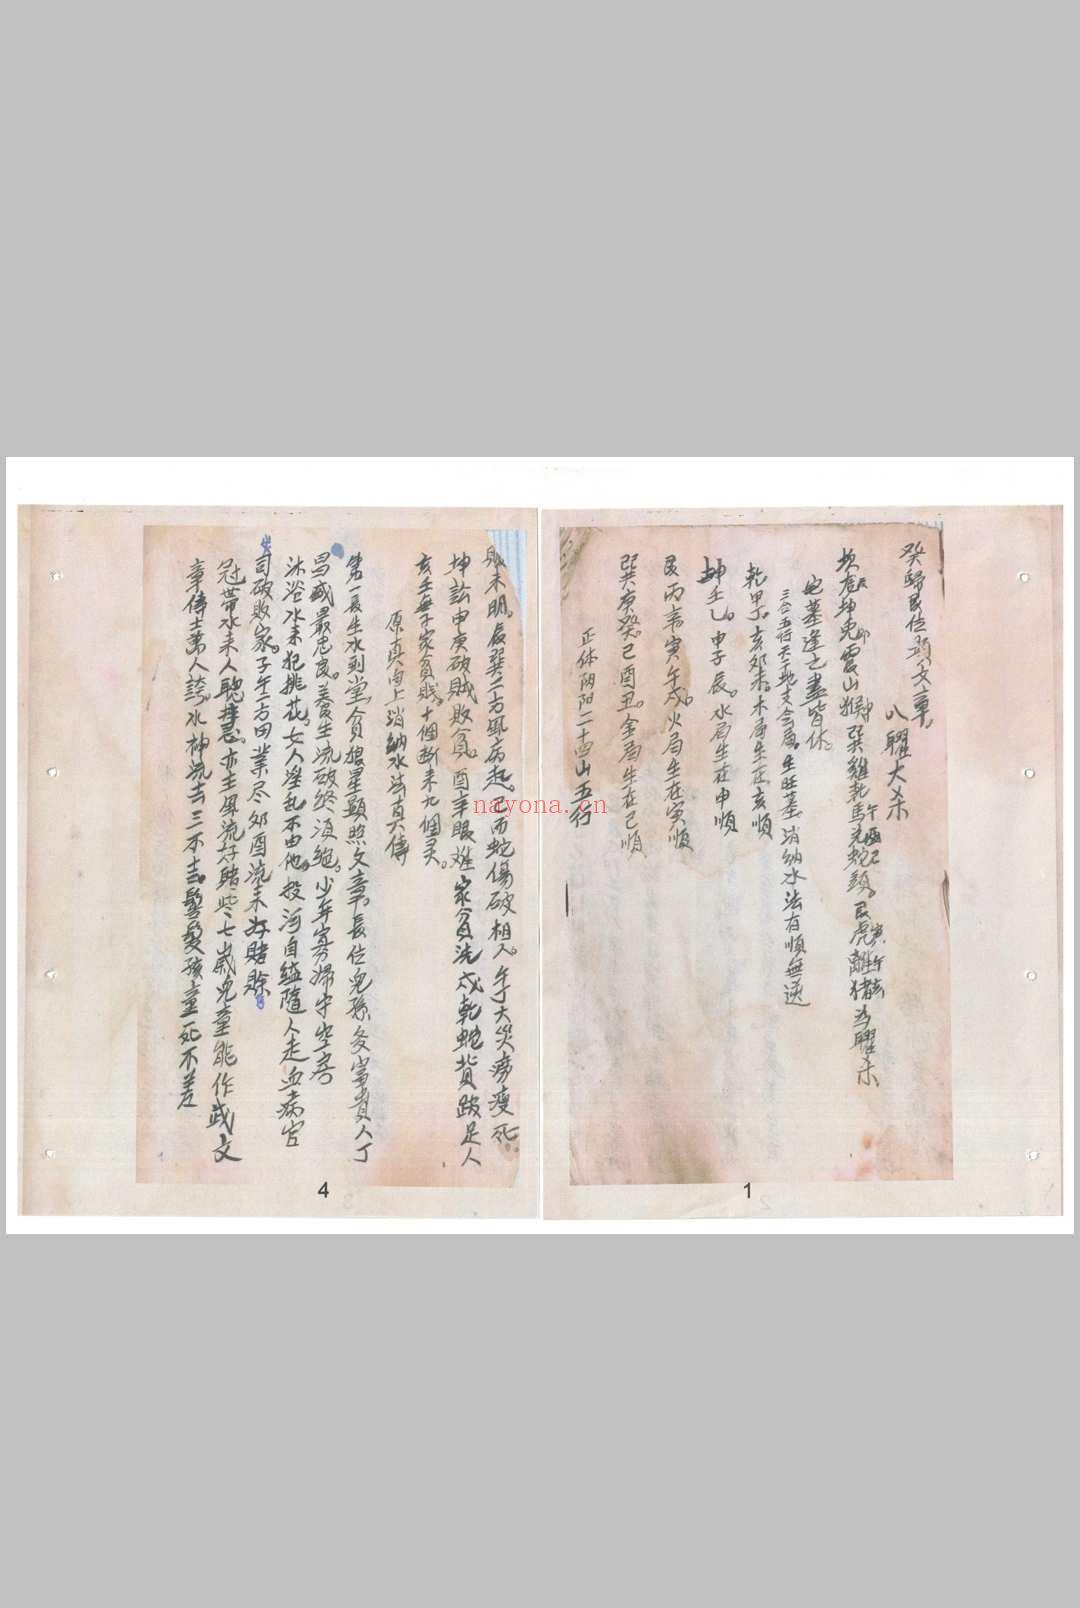 癸歸艮位顕文章。
八曜大杀
坎龙辰坤兎卯震山猴申巽雞乾馬午兌蛇頭。艮虎寅離猪為曜杀
宅墓逢之盡皆休。
三合五行天干地支合局。生旺墓、消纳水法有順無逆
乾甲丁。亥卯未。木局生在亥順
坤壬乙。申子辰。水局生在申順
艮丙辛寅午戍。火局生在寅順
巽庚癸。己酉丑。金局生在己順
正体阴阳二十四山五行
1
未明。辰巽二方瓬病起。己丙蛇傷破相人。午丁大災痨瘦死
坤訟申庚破賊敗貪。酉辛眼难家貧洗戍乾蛇背跛足人
亥壬無子家貧贱。十個断来九個灵。
原真向上消纳水法真傳
第一長生水到堂貪狼星顕照文章。長位兒孫多富貴人丁
昌盛最忠良。養生流破终須絶。少年寡婦守空房
沐浴水来犯挑花。女人滛乱不由他。投河自缢隨人走血病官
司破敗家。子午二方田業尽卯酉流来好賭賒
冠带水来人聪慧。亦主風流好賭些七歲兒童能作賦文
章傳士萬人誇。水神流去三不吉。髫髮孩童死不差
4
nayona.cn